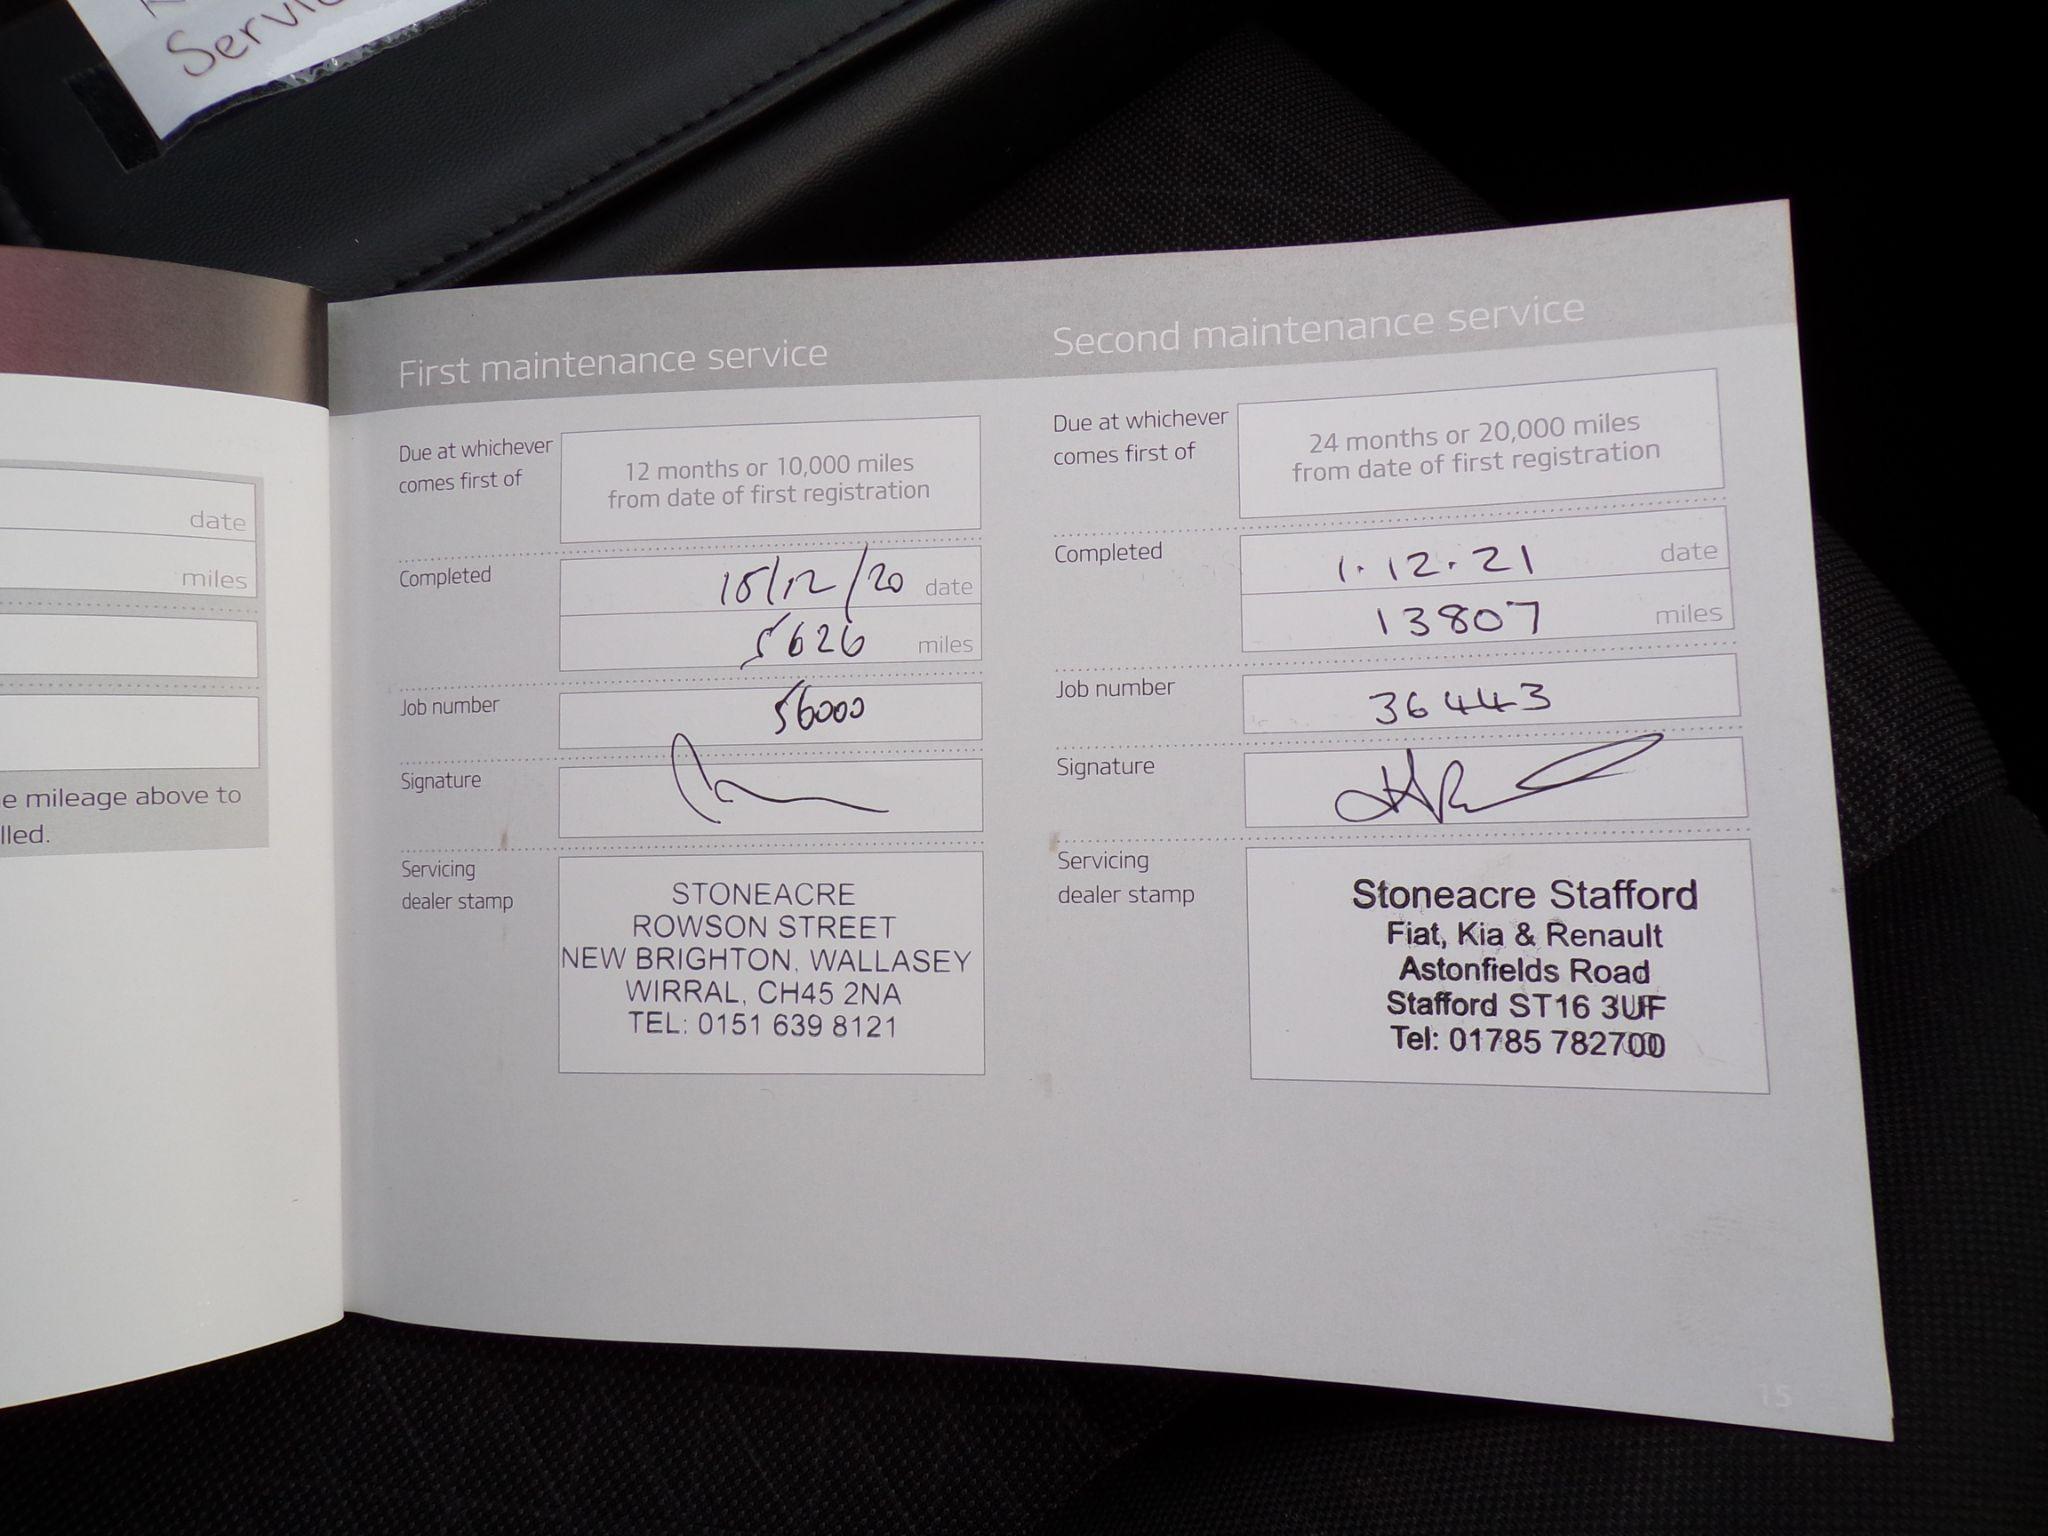 Servi
date
miles
e mileage above to
lled.
First maintenance service
Due at whichever
comes first of
12 months or 10,000 miles
from date of first registration
Completed
15/12/20 date
5626 miles
Job number
56000
Signature
Servicing
dealer stamp
STONEACRE
ROWSON STREET
NEW BRIGHTON, WALLASEY
WIRRAL, CH45 2NA
TEL: 0151 639 8121
Second maintenance service
Due at whichever
comes first of
24 months or 20,000 miles
from date of first registration
Completed
1.12.21 date
13807 miles
Job number
36443
Signature
Servicing
dealer stamp
Stoneacre Stafford
Fiat, Kia & Renault
Astonfields Road
Stafford ST16 3UF
Tel: 01785 782700
15